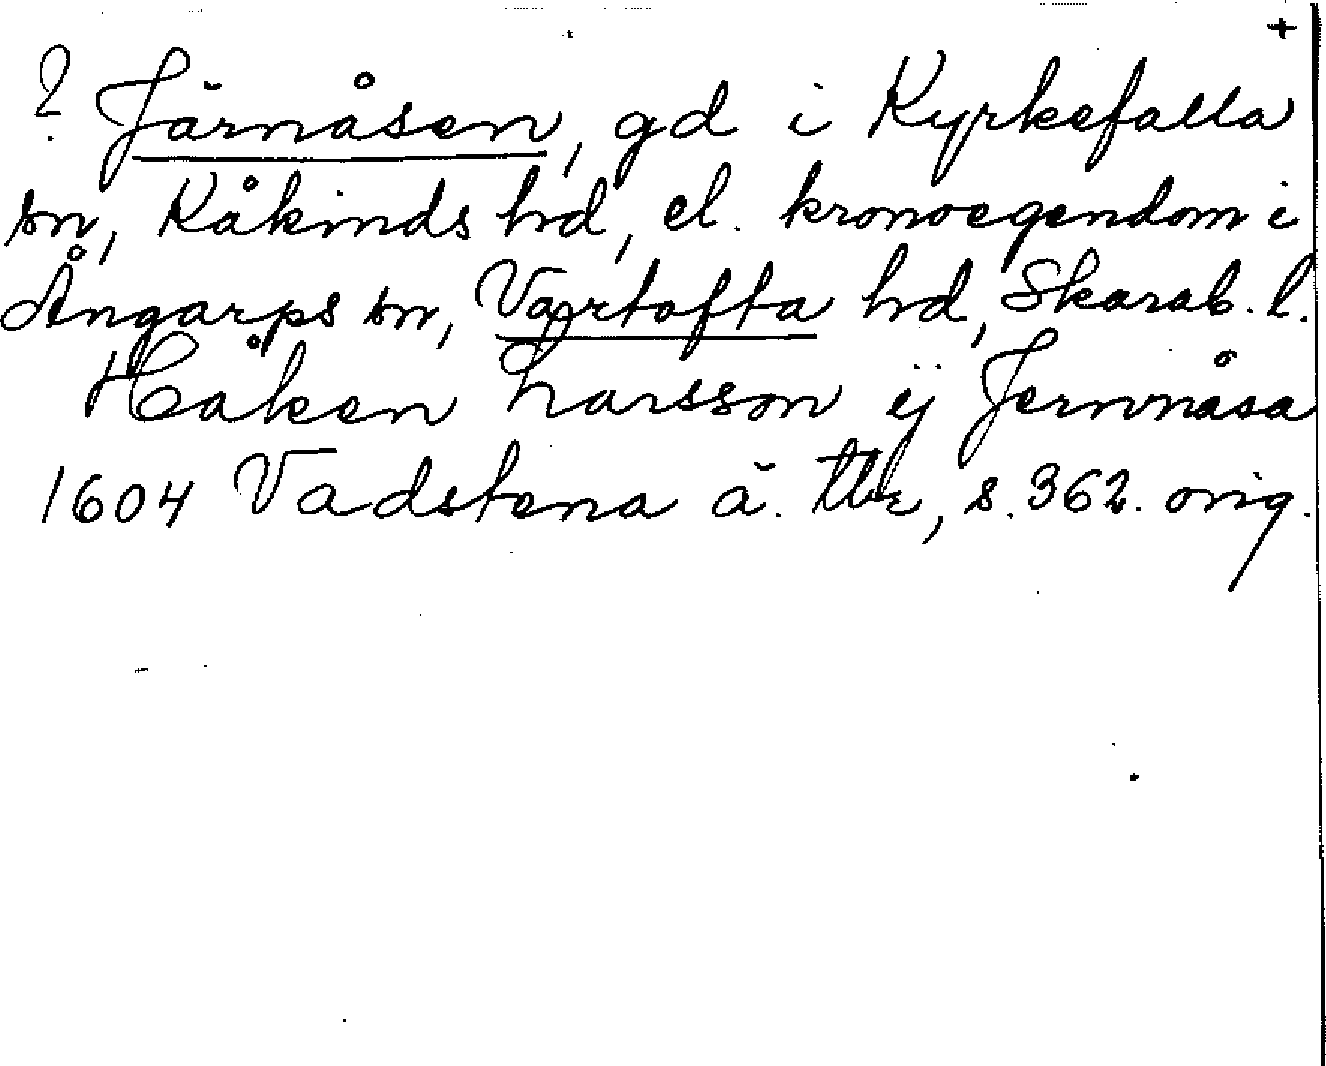 +
? Järnåsen, gd i Kyrkefalla
sn, Kåkinds hd, el. kronoegendom i
Ångarps sn, Vartofta hd, Skarab. l.
Håken Larsson ij Jernnåsa
1604 Vadstena ä. tbr, s. 362. orig.